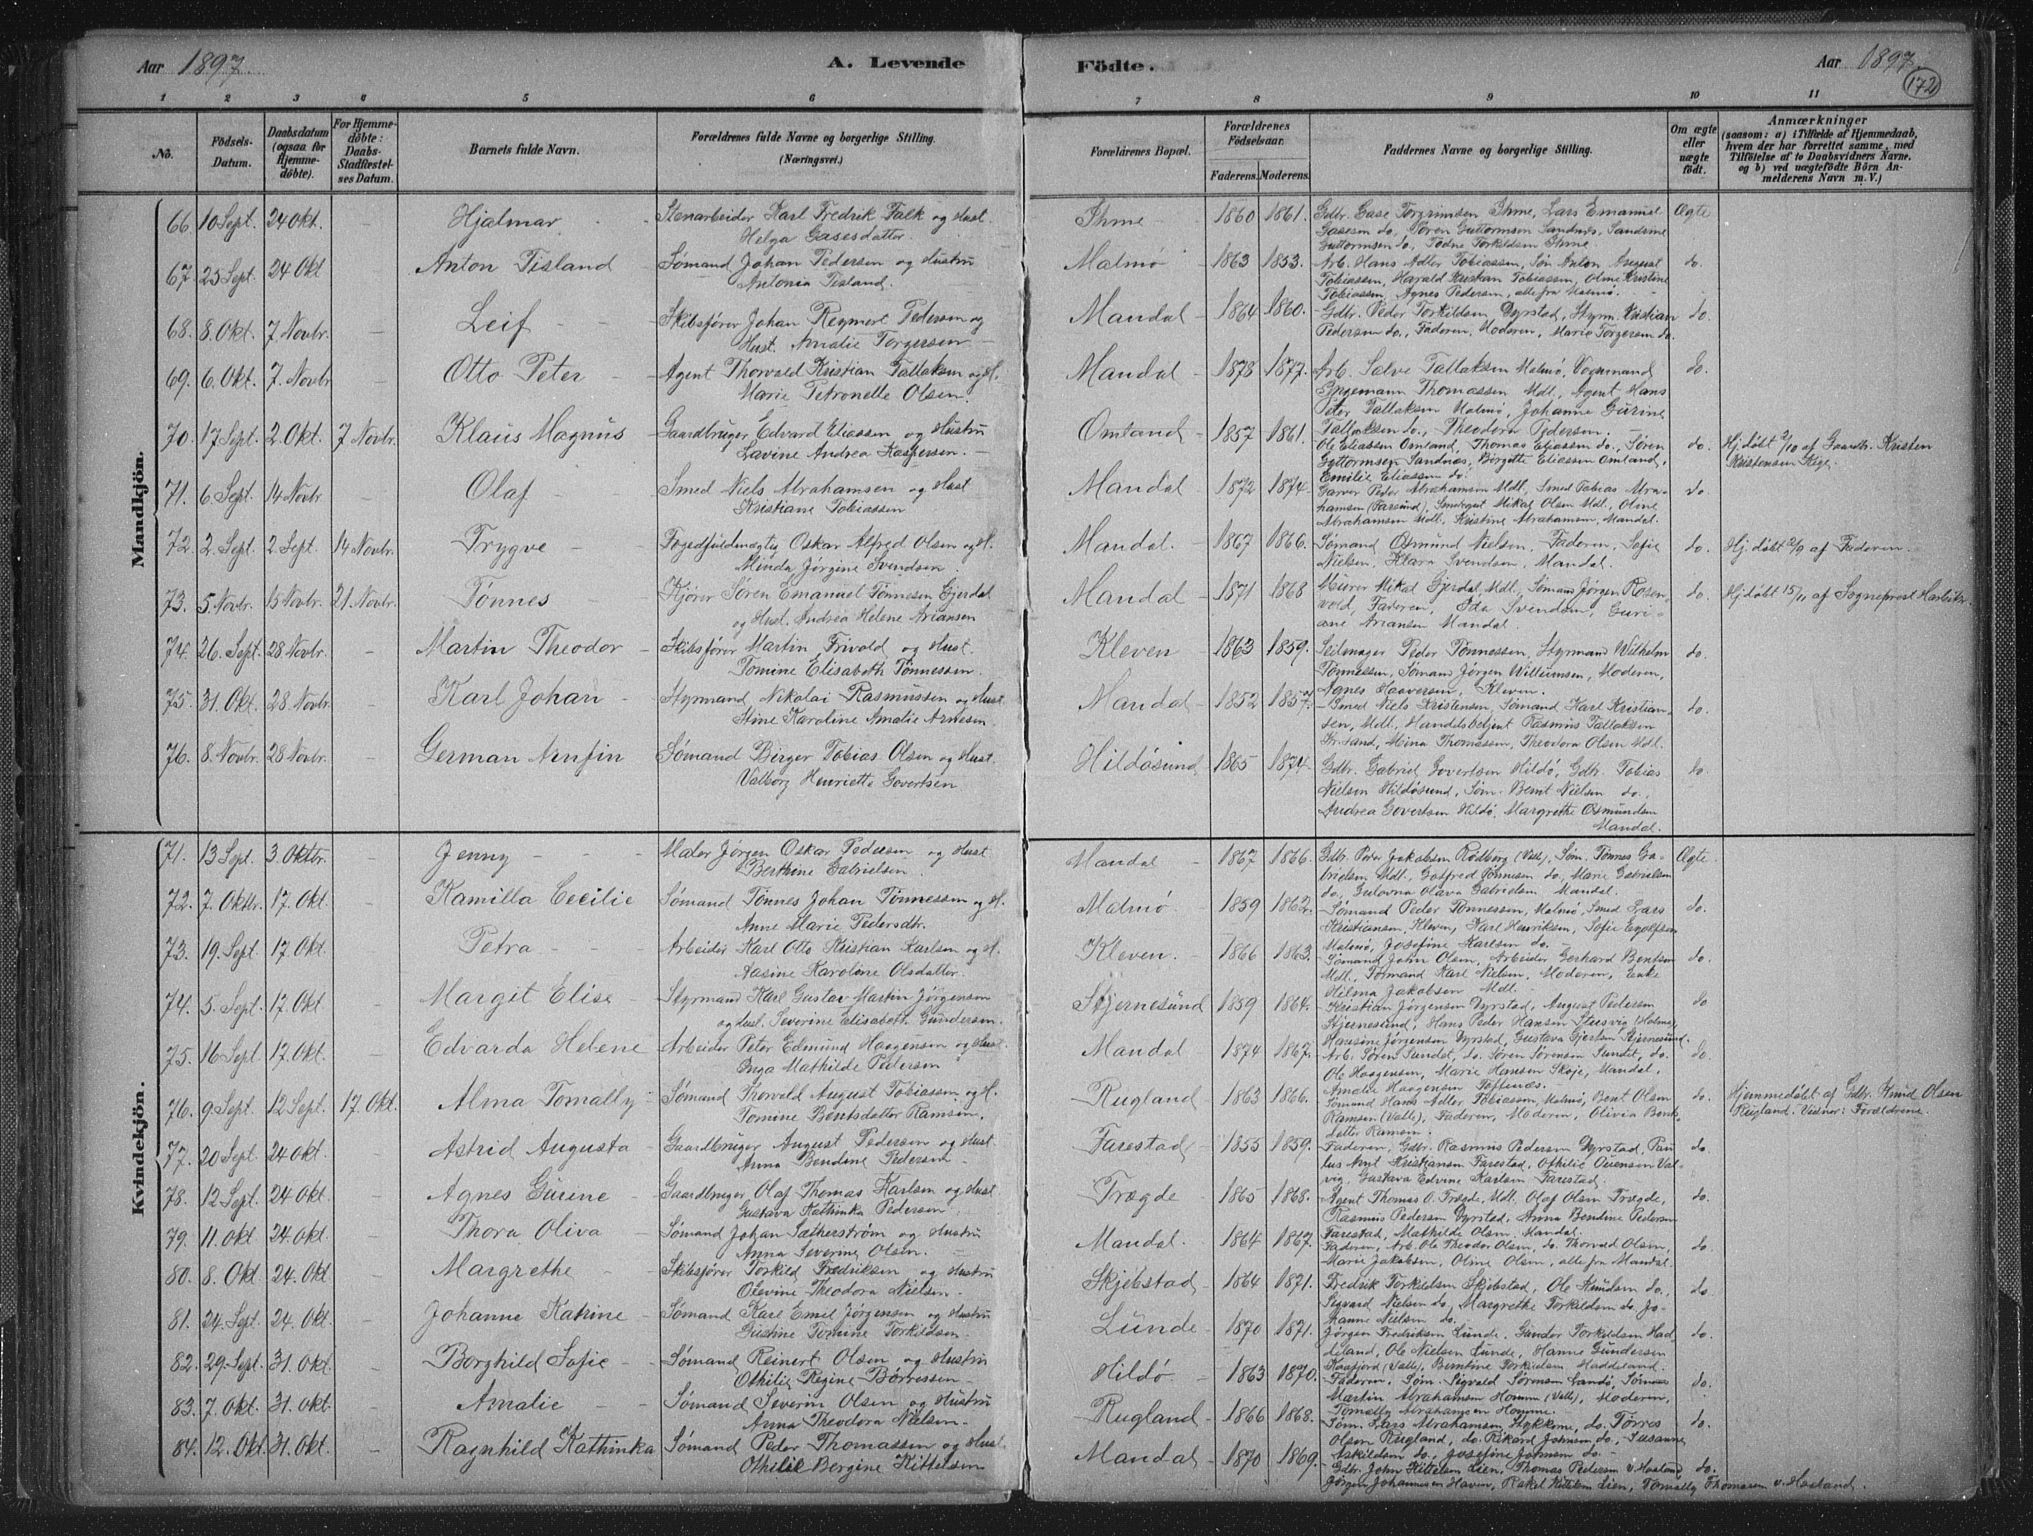 Aar 1897. A. Levende
Födte. Aar 1897.
172
1 2 3 4 5 6
7 8 9 10 11
No. Födsels-Datum. Daabsdatum (ogsaa for Hjemmedöbte). For Hjemmedöbte: Daabs-Stadfæstelses Datum. Barnets fulde Navn. Forældrenes fulde Navne og borgerlige Stilling. (Næringsvei.)
Forældrenes Bopæl. Forældrenes Födselsaar. Faderens. Moderens. Faddernes Navne og borgerlige Stilling. Om ægte eller uægte födt. Anmærkninger (saasom: a) i Tilfælde af Hjemmedaab, hvem der har forrettet samme, med Tilföielse af to Daabsvidners Navne, og b) ved uægtefödte Börn Anmelderens Navn m. V.)
Mandkjön.
66. 10 Sept. 24 Okt. Hjalmar Stenarbeider Karl Fredrik Falk og Hust.
Helga Gasesdatter.
Ihme 1860 1861. Gdbr. Gase Torgrimsen Ihme, Lars Emanuel
Gasesen do, Søren Guttormsen Sandnes, Sandrine
Guttormsen do, Todne Torkildsen Ihme. Ægte
67. 25 Sept. 24 Okt. Anton Tisland Sømand Johan Pedersen og Hustru
Antonia Tisland.
Malmø 1863 1853. Arb. Hans Adler Tobiassen, Søn Anton August
Tobiassen, Harald Kristian Tobiassen, Oline Kristine
Tobiassen, Agnes Pedersen, alle fra Malmø. do.
68. 8. Okt. 7 Novbr. Leif Skibsfører Johan Reymert Pedersen og
Hust. Amalie Torgersen
Mandal 1864 1860. Gdbr. Peder Torkildsen Dyrstad, Styrm. Kristian
Pedersen do, Faderen, Moderen, Marie Torgersen do. do.
69. 6. Okt. 7. Novbr. Otto Peter Agent Thorvald Kristian Tallaksen og H.
Marie Petronelle Olsen.
Mandal 1873 1877. Arb. Salve Tallaksen Malmø, Vognmand
Engemann Thomassen Mdl., Agent Hans
Peter Tallaksen Malmø, Johanne Gurine
Tallaksen do., Theodora Pedersen. do.
70. 17 Sept. 2. Okt. 7 Novbr. Klaus Magnus Gaardbruger Edvard Eliassen og Hustru
Lavine Andrea Kaspersen.
Omland 1857 1861. Ole Eliassen Omland, Thomas Eliassen do., Søren
Guttormsen Sandnes, Birgitte Eliassen Omland,
Emilie Eliassen do. do. Hj.døbt 2/10 af Gaardbr. Kristen
Kristensen Kige.
71. 6 Sept. 14 Novbr. Olaf Smed Niels Abrahamsen og Hust.
Kristiane Tobiassen
Mandal 1872 1874. Garver Peder Abrahamsen Mdl., Smed Tobias Abrahamsen
(Farsund), Smedsvend Mikal Olsen Mdl., Oline
Abrahamsen Mdl., Kristine Abrahamsen, Mandal. do.
72. 2. Sept. 2 Sept. 14 Novbr. Trygve Fogedfuldmægtig Oskar Alfred Olsen og H.
Minda Jørgine Svendsen
Mandal. 1867 1866. Sømand Osmund Nielsen, Faderen, Sofie
Nielsen, Klara Svendsen, Mandal. do. Hj.døbt 2/9 af Faderen.
73. 5. Novbr. 15 Novbr. 21 Novbr. Tønnes Kjører Søren Emanuel Tønnesen Gjerdal
og Hust. Andrea Helene Ariansen
Mandal 1871 1868 Murer Mikal Gjerdal, Mdl., Sømand Jørgen Rosenvold,
Faderen, Ida Svendsen, Guriane
Ariansen Mandal. do. Hj.døbt 15/11 af Sogneprest Harbitz.
74. 26. Sept. 28 Novbr. Martin Theodor Skibsfører Martin Trivold og Hust.
Tomine Elisabeth Tønnessen.
Kleven 1863 1859. Seilmager Peder Tønnessen, Styrmand Wilhelm
Tønnessen, Sømand Jørgen Willumsen, Moderen,
Agnes Haaversen, Kleven. do.
75. 31. Okt. 28 Novbr. Karl Johan Styrmand Nikolai Rasmussen og Hust.
Stine Karoline Amalie Arnesen.
Mandal 1852 1857. Smed Niels Kristensen, Sømand Karl Kristiansen,
Mdl., Handelsbetjent Rasmus Tallaksen
Kr.sand, Mina Thomassen, Theodora Olsen Mdl. do.
76. 8. Novbr. 28 Novbr. German Arnfin Sømand Birger Tobias Olsen og Hust.
Valborg Henriette Govertsen
Hildøsund 1865 1874. Gdbr. Gabriel Govertsen Hildø, Gdbr. Tobias
Nielsen Hildøsund, Søm. Bernt Nielsen do.,
Andrea Govertsen Hildø, Margrethe Osmundsen
Mandal. do.
Kvindekjön.
71. 13 Sept. 3. Oktbr. Jenny Maler Jørgen Oskar Pedersen og Hust.
Berthine Gabrielsen.
Mandal 1867 1866. Gdbr. Peder Jakobsen Rødberg (Valle), Søm. Tønnes Gabrielsen
Mdl., Gotfred Tønnesen do, Marie Gabrielsen
do, Gulovna Olava Gabrielsen Mandal. Ægte.
72. 7. Oktbr. 17. Okt. Kamilla Cecilie Sømand Tønnes Johan Tønnessen og H.
Anne Marie Pedersdtr.
Malmø 1859 1862. Sømand Peder Tønnessen, Malmø, Smed Lars
Kristiansen, Kleven, Karl Henriksen, Sofie Egolfsen
Malmø, Josefine Karlsen do. do.
73. 19. Sept. 17. Okt. Petra Arbeider Karl Otto Kristian Karlsen og H.
Aasine Karoline Olsdatter.
Kleven. 1866 1863. Sømand John Olsen, Arbeider Gerhard Bentsen
Mdl., Tømmand Karl Nielsen, Moderen, Enke
Hilma Jakobsen Mdl. do.
74. 5. Sept. 17. Okt. Margit Elise Styrmand Karl Gustav Martin Jørgensen
og Hust. Severine Elisabeth Gundersen.
Skjernesund 1859 1864. Kristian Jørgensen Dyrstad, August Pedersen
Skjernesund, Hans Peder Hansen Stusvig (Holme),
Haresine Jørgensen Dyrstad, Gustava Gjertsen Skjernesund. do
75. 16 Sept. 17. Okt. Edvarda Helene Arbeider Peter Edmund Haagensen og Hust.
Inga Mathilde Pedersen
Mandal 1874 1867. Arb. Søren Sundet, do. Søren Sørensen Sundet, do.
Ole Haagensen, Marie Hansen Skoje, Mandal.
Amalie Haagensen Toftenes. do.
76. 9 Sept. 12 Sept. 17 Okt. Alma Tomally Sømand Thorvald August Tobiassen og H.
Tomine Bentsdatter Ramsen.
Rugland 1863 1866. Sømand Hans Adler Tobiassen, Malmø, Bent Olsen
Ramsen (Valle), Faderen, Moderen, Olivia Bentsdatter
Ramsen. do. Hjemmedøbt af Gdbr. Knud Olsen
Rugland. Vidner: Forældrene.
77. 20 Sept. 24 Okt. Astrid Augusta Gaardbruger August Pedersen og Hust.
Anna Bendine Pedersen
Farestad 1855 1859. Faderen, Gdbr. Rasmus Pedersen Dyrstad, Paulus
Arnt Kristiansen Farestad, Othilie Ouensen Valvig,
Gustava Edvine Karlsen Farestad. do.
78. 12 Sept. 24 Okt. Agnes Gurine Gaardbruger Olaf Thomas Karlsen og Hust.
Gustava Kathinka Pedersen.
Trægde 1865 1868. Agent Thomas O. Trægde, Mdl. Olaf Olsen Trægde,
Rasmus Pedersen Dyrstad, Anna Bendine Pedersen
Farestad, Mathilde Olsen, Mandal. do.
79. 11. Okt 24. Okt. Thora Oliva Sømand Johan Sætherstrøm og Hustru
Anna Severine Olsen.
Mandal. 1864 1867. Faderen, Arb. Ole Theodor Olsen, do. Thorvald Olsen,
Marie Jakobsen, Oline Olsen, alle fra Mandal. do.
80. 8. Okt 24. Okt. Margrethe Skibsfører Torkild Fredriksen og Hustru
Olevine Theodora Nielsen.
Skjebstad 1864 1871. Fredrik Torkildsen Skjebstad, Ole Knudsen do.,
Sigvard Nielsen do, Margrethe Torkildsen do, Johanne
Nielsen do. do.
81. 24. Sept. 24. Okt. Johanne Katrine Sømand Karl Emil Jørgensen og Hustru
Gustine Tomine Torkildsen.
Lunde 1870 1871. Jørgen Fredriksen Lunde, Gunder Torkildsen Haddeland,
Ole Nielsen Lunde, Hanne Gundersen
Kaafjord (Valle), Berntine Torkildsen Haddeland. do.
82. 29. Sept. 31. Okt. Borghild Sofie Sømand Reinert Olsen og Hustru
Othilie Regine Børresen
Hildø 1863 1870. Faderen, Søm. Sigvald Sørensen Landø, Tønnes
Martin Abrahamsen Homme (Valle), Moderen,
Tomally Abrahamsen Homme. do.
83. 7. Okt. 31. Okt. Amalie Sømand Severin Olsen og Hustru
Anna Theodora Nielsen.
Rugland 1866 1868. Søm. Lars Abrahamsen Stykkene, do. Tørres
Olsen Rugland, do. Rikard Johnsen do., Susanne
Askildsen do., Josefine Johnsen do. do.
84. 12. Okt. 31. Okt. Ragnhild Kathinka Sømand Peder Thomassen og Hust.
Othilie Bergine Kittelsen
Mandal 1870 1869. Gdbr. John Kittelsen Lien, Thomas Pedersen v. Hasland,
Jørgen Johannessen Haven, Rakel Kittelsen Lien, Tomally Thomassen v. Hasland. do.